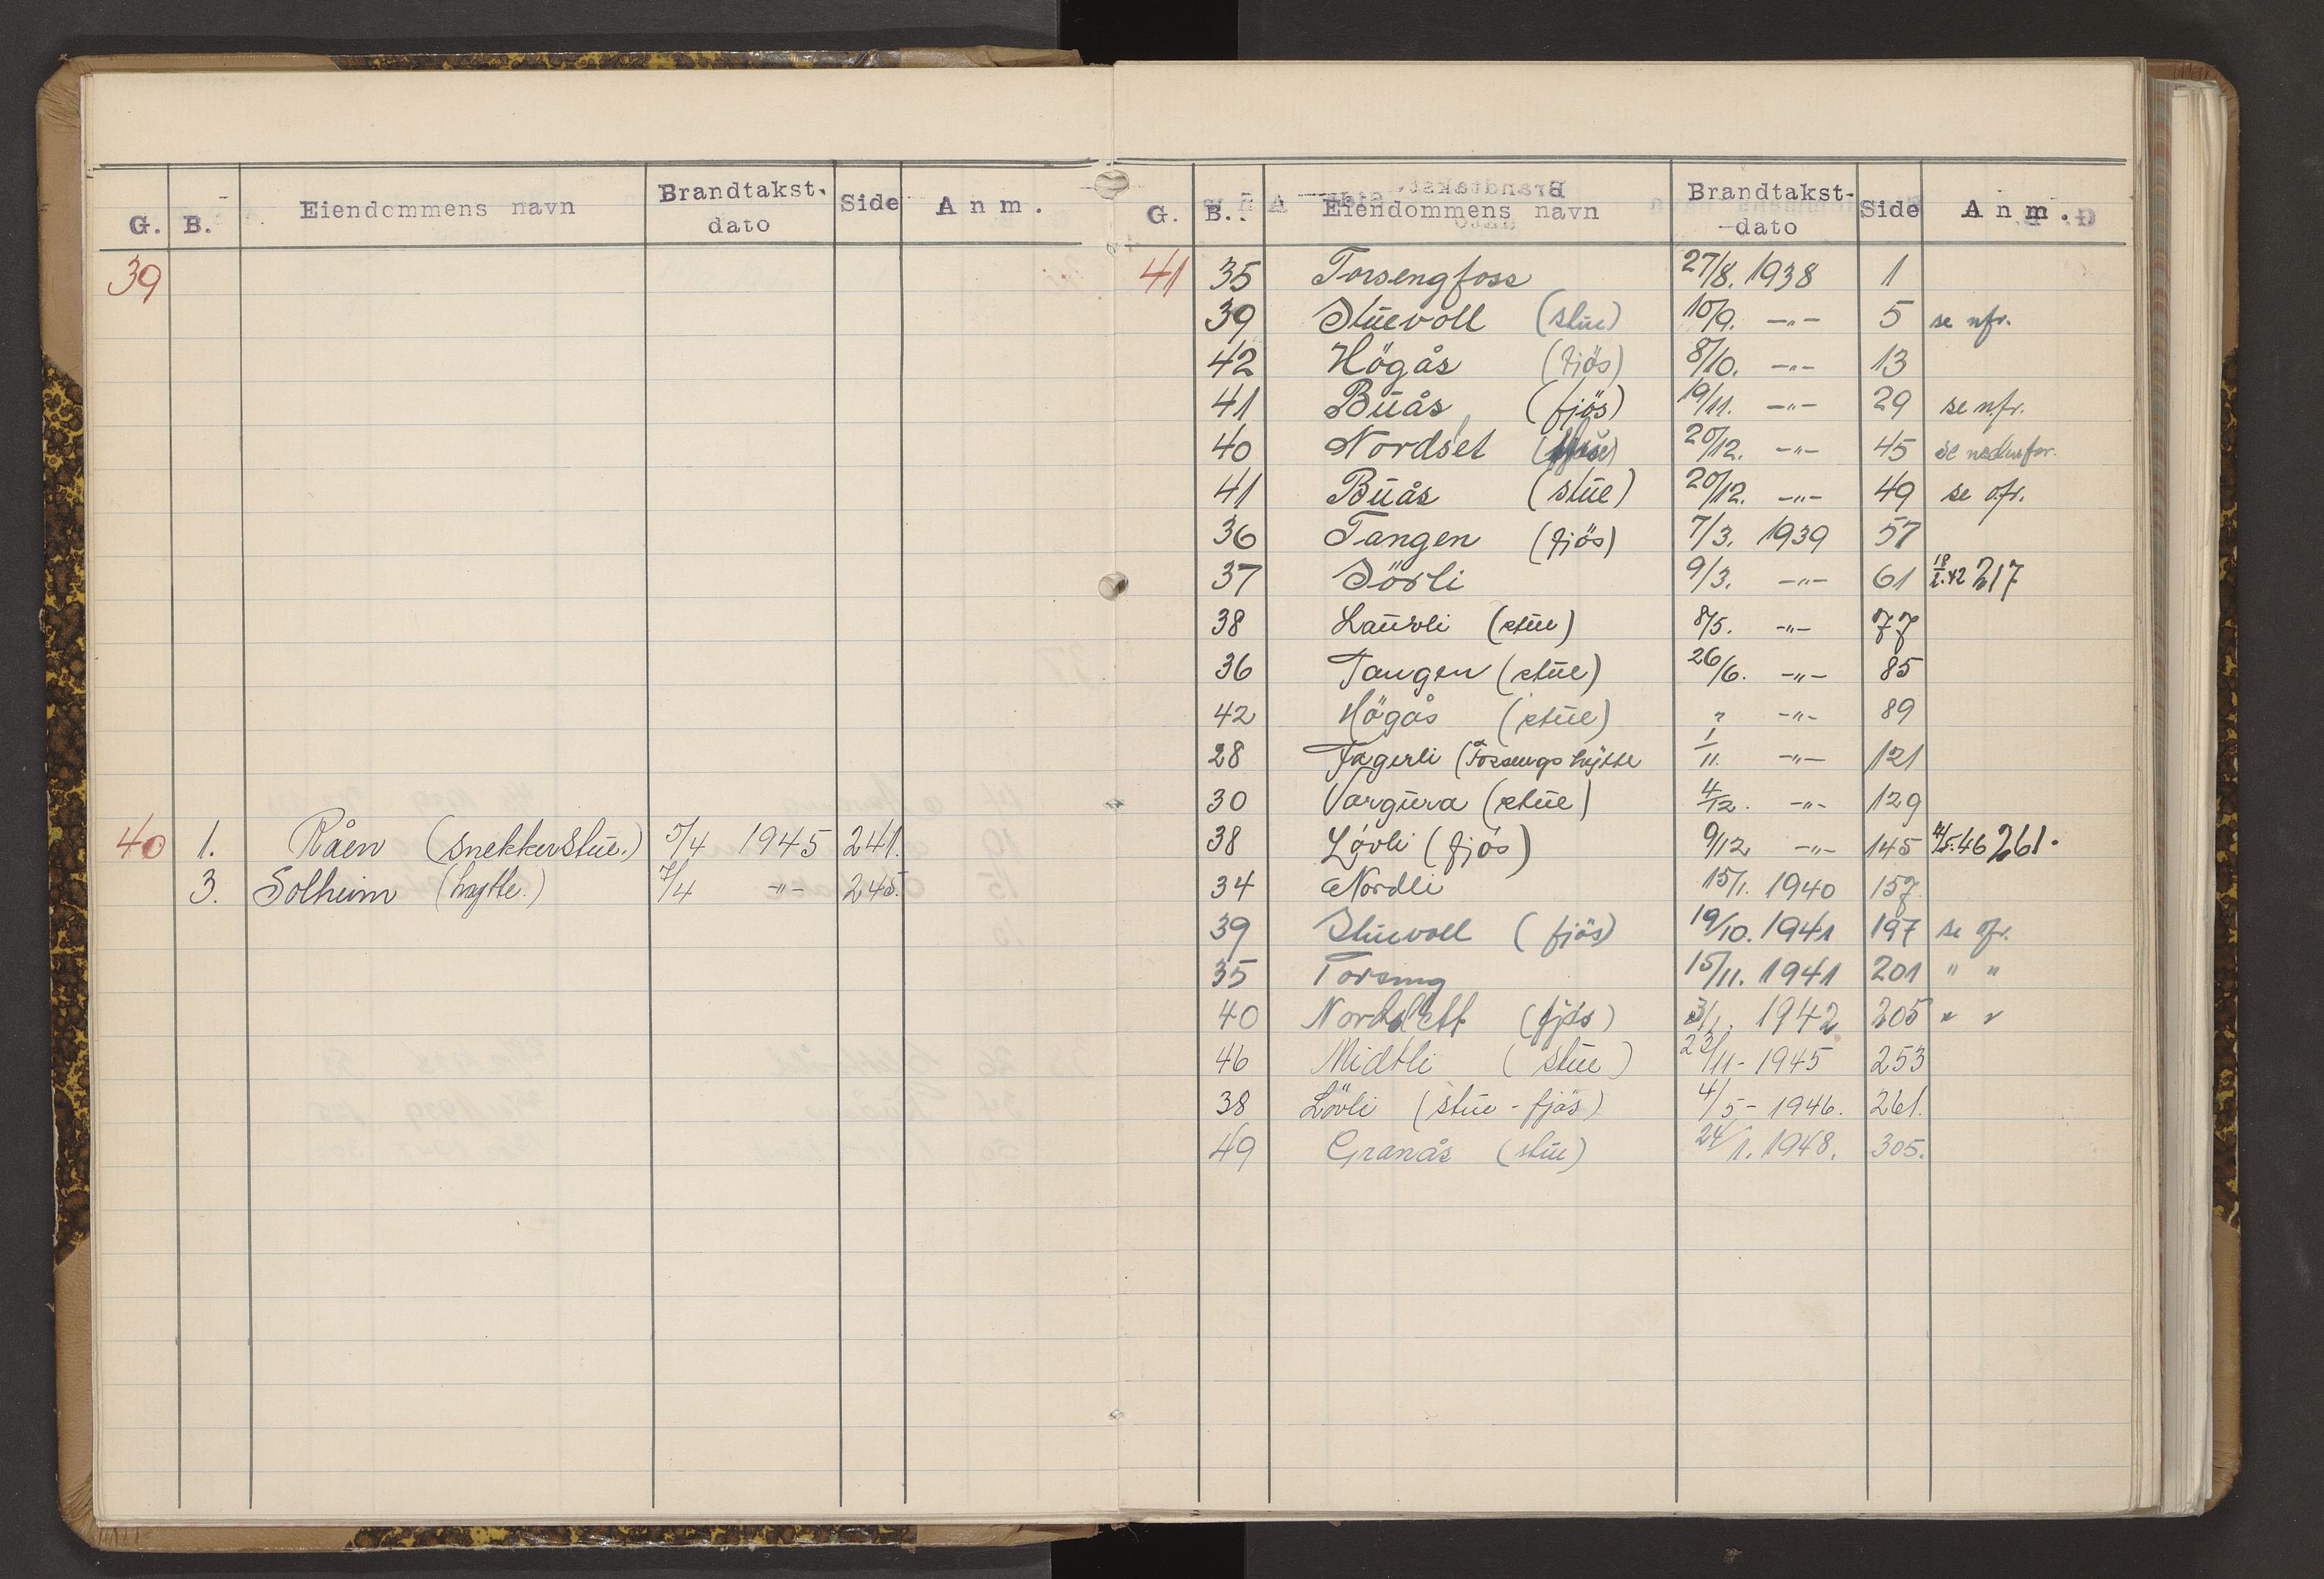 G. B. Eiendommens navn Brandtakst-dato Side Anm.
39
40 1. Råen (snekkerstue.) 5/4 1945 241.
3. Solheim 7/4 -"- 245.
G. B. Eiendommens navn Brandtakst-dato Side Anm.
41 35 Torsengfoss 27/8. 1938 1
39 Stuevoll (stue) 10/9. -"- 5 se nfr.
42 Högås (fjös) 8/10. -"- 13
41 Buås (fjös) 19/11. -"- 29 se nfr.
40 Nordset 20/12. -"- 45 se nedenfor.
41 Buås (stue) 20/12. -"- 49 se ofr.
36 Tangen (fjös) 7/3. 1939 57
37 Sörli 9/3. -"- 61 18/2.42 217
38 Laurli (stue) 8/5. -"- 77
36 Tangen (stue) 26/6. -"- 85
42 Högås (stue) " -"- 89
28 Fagerli (Torsengs hytte 1/11. -"- 121
30 Vargura (stue) 4/12. -"- 129
38 Lövli (fjös) 9/12 -"- 145 4/5.46 261.
34 Nordli 15/1. 1940 157
39 Stuevoll (fjös) 19/10. 1941 197 se ofr.
35 Torseng 15/11. 1941 201 " "
40 Nordsett (fjös) 3/1. 1942 205 " "
46 Midtli (stue) 23/11- 1945 253
38 Lövli (stue - fjös) 4/5- 1946. 261.
49 Granås (stue) 24/1. 1948. 305.